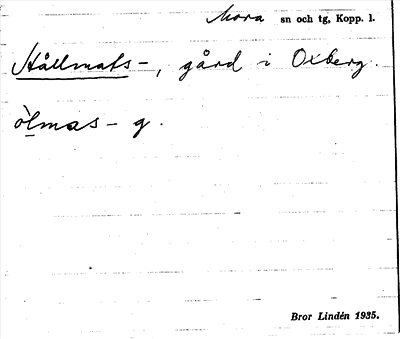 Mora sn och tg, Kopp. l.
Hållmats-, gård i Oxberg.
òlmas- g.
Bror Lindén 1935.